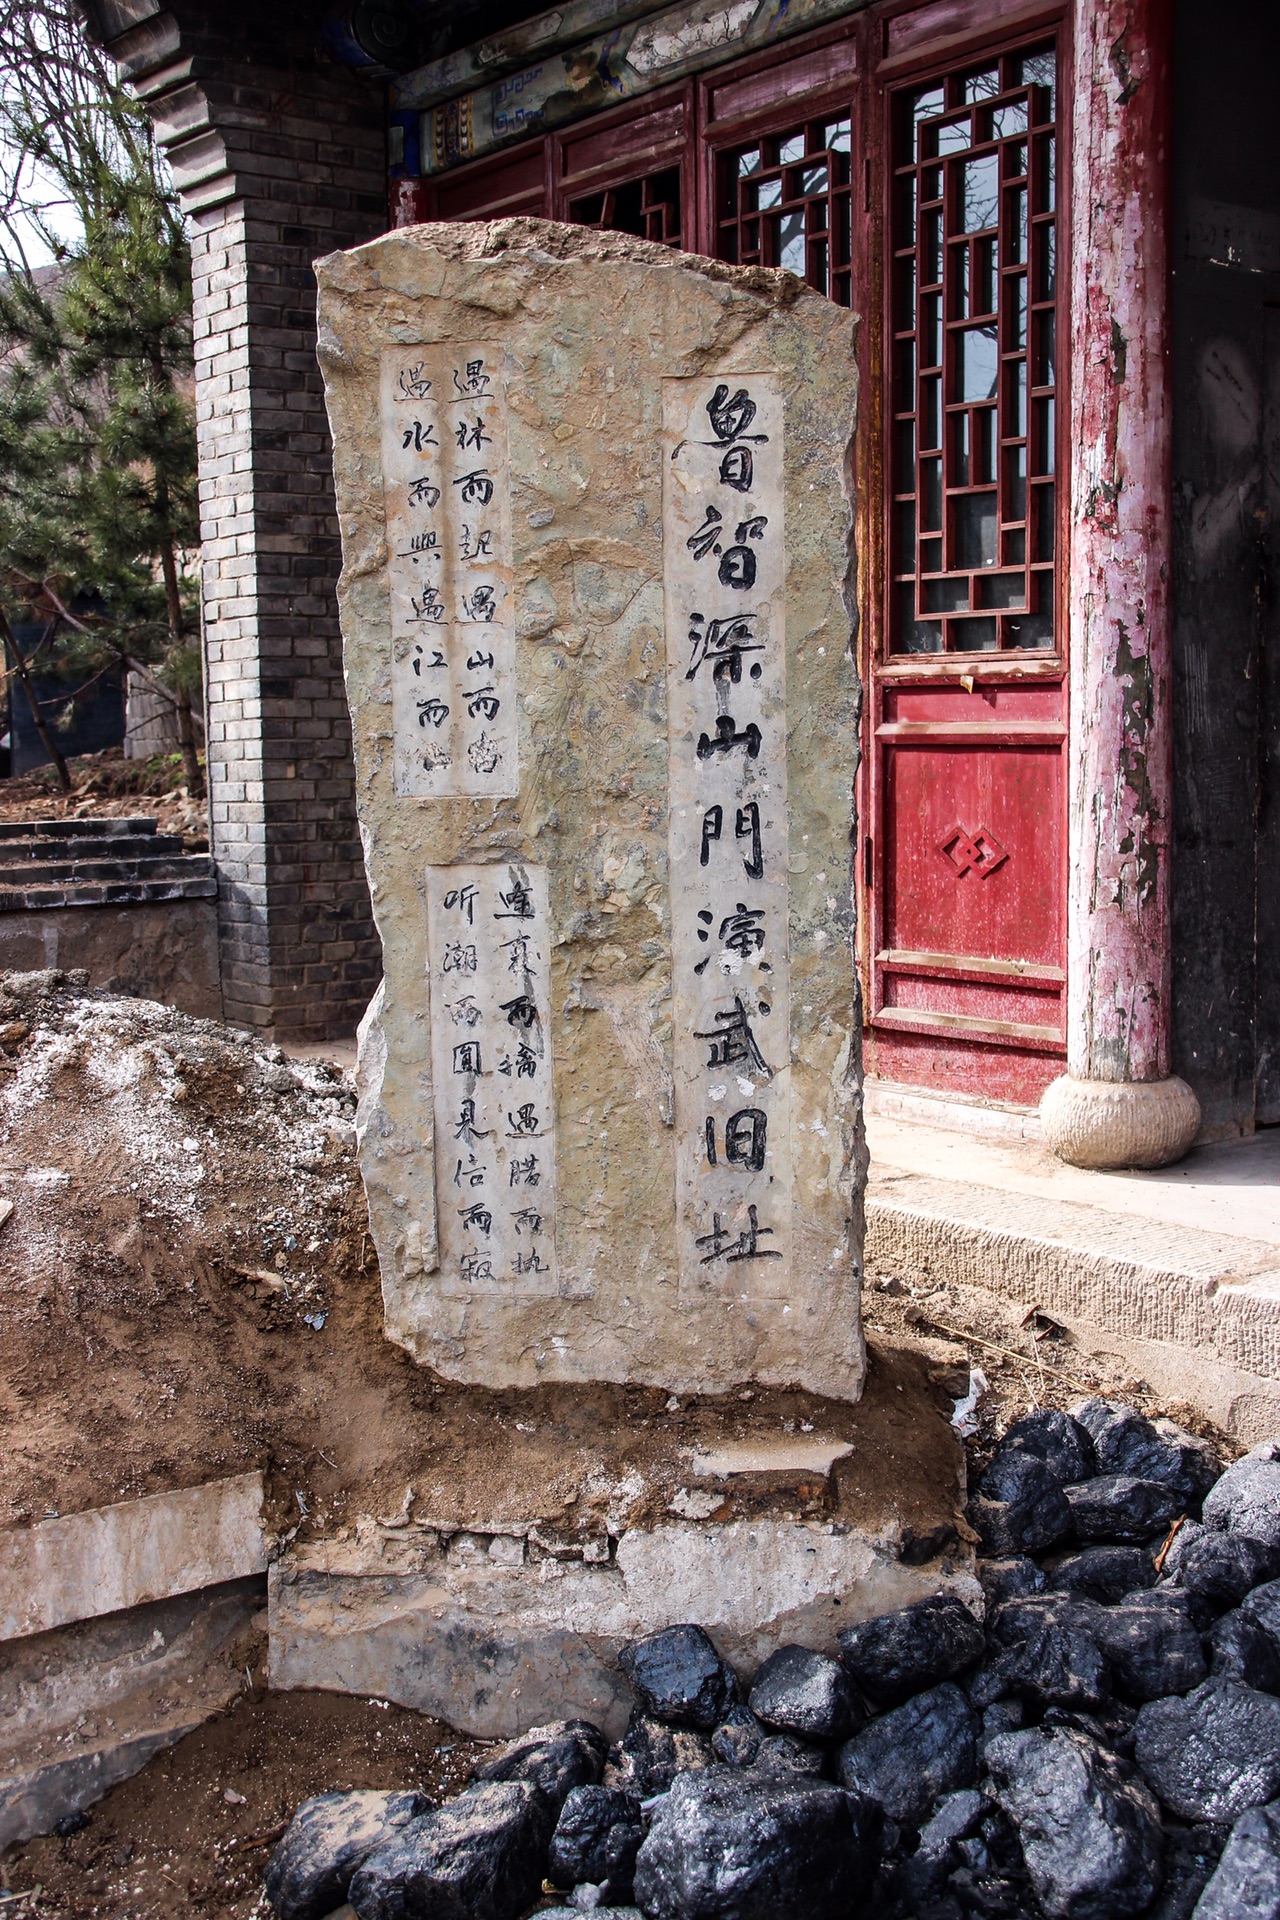 魯智深山門演武旧址
遇林而起遇山而富
遇水而興遇江而止
逢夏而擒遇腊而执
听潮而圓見信而寂